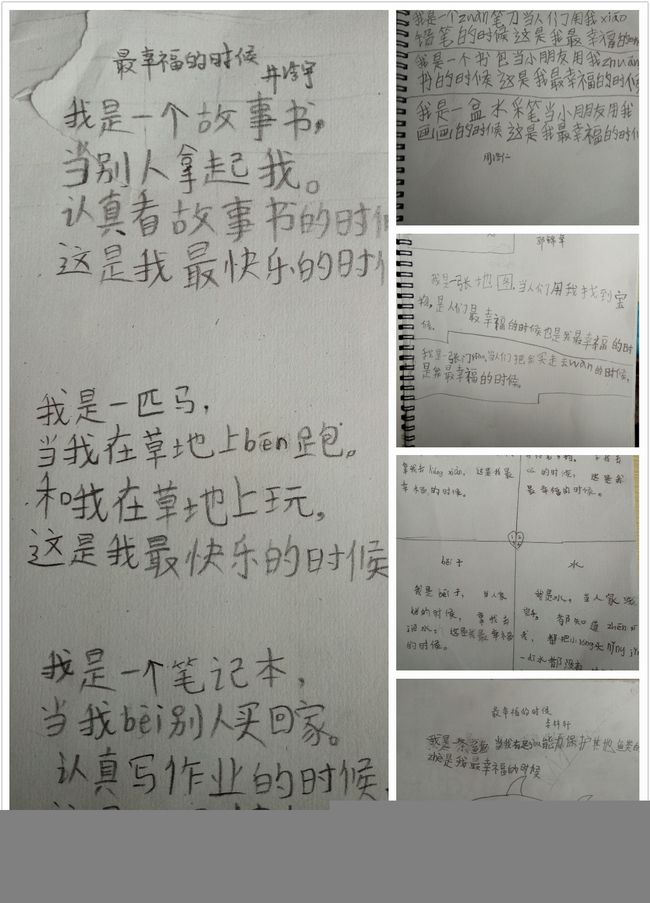 最幸福的时候
井浩宇
我是一个故事书，
当别人拿起我。
认真看故事书的时候
这是我最快乐的时
我是一匹马，
当我在草地上bēn跑。
和我在草地上玩，
这是我最快乐的时候
我是一个笔记本，
当我bèi别人买回家。
认真写作业的时候，
我是一个zuàn笔刀当人们用我xiāo
铅笔的时候这是我最幸福的
我是一个书包当小朋友用我zhuāng
书的时候这是我最幸福的时候
我是一盒水采笔当小朋友用我
画画的时候这是我最幸福的时
我是一张地图，当人们用我找到宝
物，是人们最幸福的时候也是我最幸福的时
候。
我是一张门piào，当人们把我买走去wán的时候，
是我最幸福的时候。
这是我最
幸福的时候。
的时候，这是我
最幸福的时候。
bēi子
我是bēi子，当人家
的时候，拿我去
水，这是我最幸福
的时候。
水
我是水，当人家
都知道zhēn
一点水都没有
最幸福的时候
我是一条 当我有足以能力保护其他鱼类的
zhè是我最幸福的时候